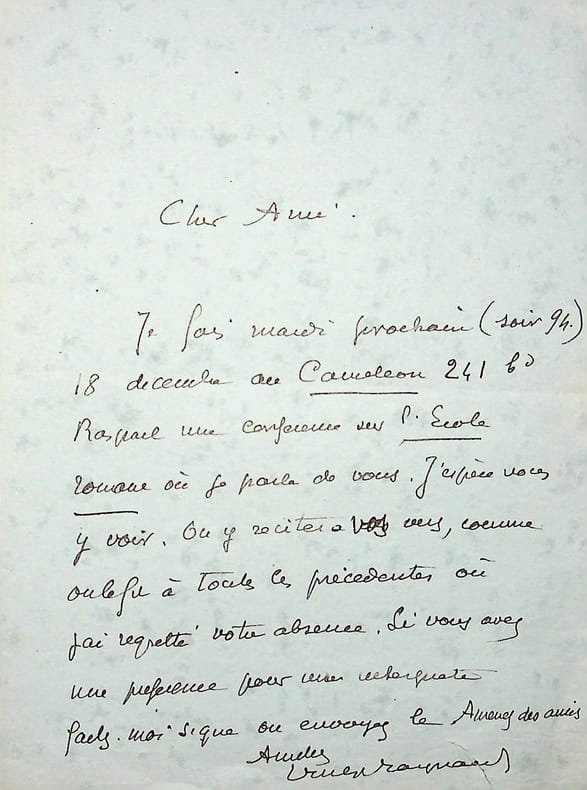 Cher Ami.
Je fais mardi prochain (soir 9h.)
18 decembre au Cameleon 241 bd
Raspail une conference sur l'Ecole
romane où je parle de vous. J'espère vous
y voir. On y recitera vos vers, comme
on le fit à toutes les précedentes où
j'ai regretté votre absence. Si vous avez
une preference pour une
faites-moi signe ou envoyez le
Amities
Ernest Raynaud